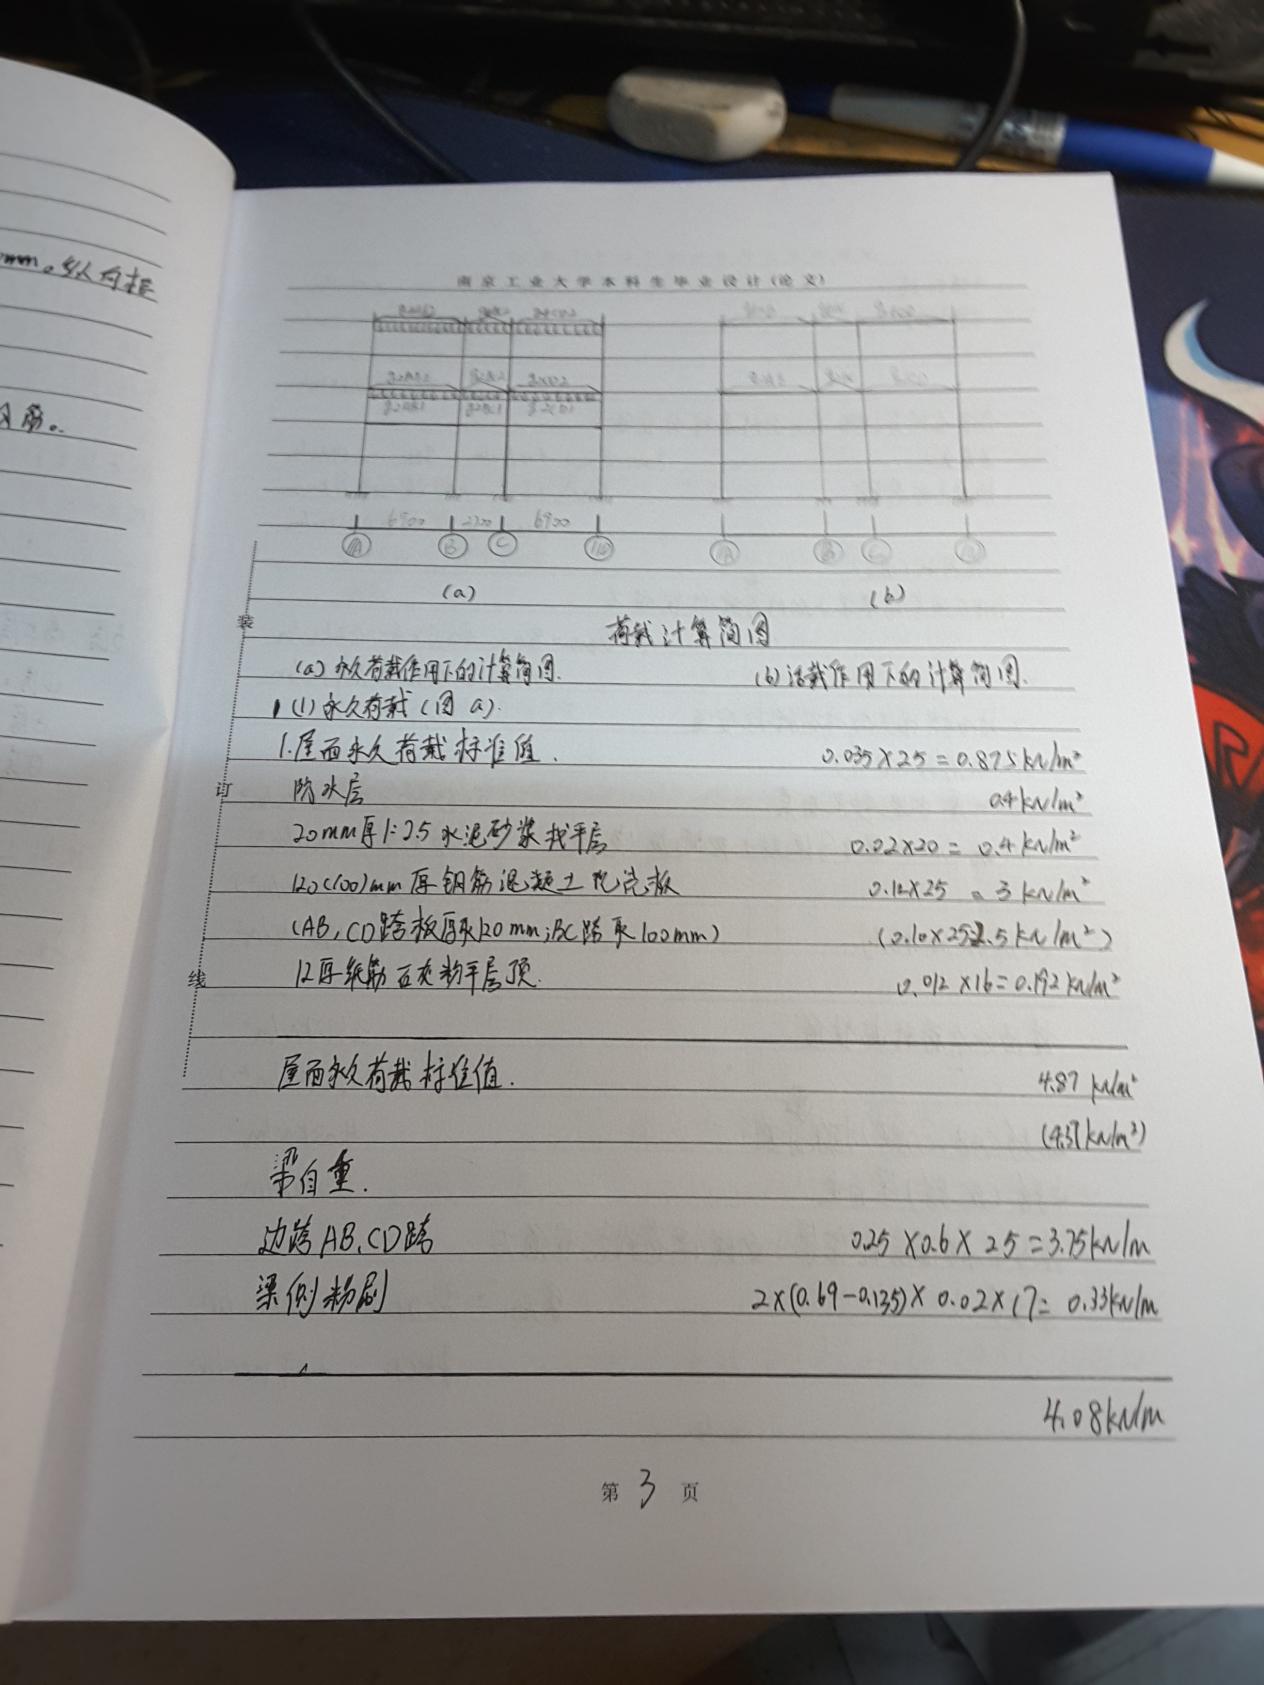 mm。纵向框
南京工业大学本科生毕业设计(论文)
6900 2700 6900
A B C D A B C D
(a) (b)
荷载计算简图
(a)永久荷载作用下的计算简图. (b)活载作用下的计算简图.
(1)永久荷载(图 a).
1.屋面永久荷载标准值. 0.035×25=0.875kN/m²
防水层 0.4kN/m²
20mm厚1:2.5水泥砂浆找平层 0.02×20= 0.4kN/m²
120(100)mm厚钢筋混凝土现浇板 0.12×25 = 3kN/m²
(AB,CD跨板厚取120mm;BC跨取100mm) (0.10×25=2.5kN/m²)
12厚纸筋石灰粉平屋顶. 0.012×16=0.192kN/m²
屋面永久荷载标准值. 4.87 kN/m²
(4.37kN/m²)
梁自重.
边跨AB、CD跨 0.25×0.6×25=3.75kN/m
梁侧粉刷 2×(0.69-0.135)×0.02×17= 0.33kN/m
4.08kN/m
装
订
线
第 3 页